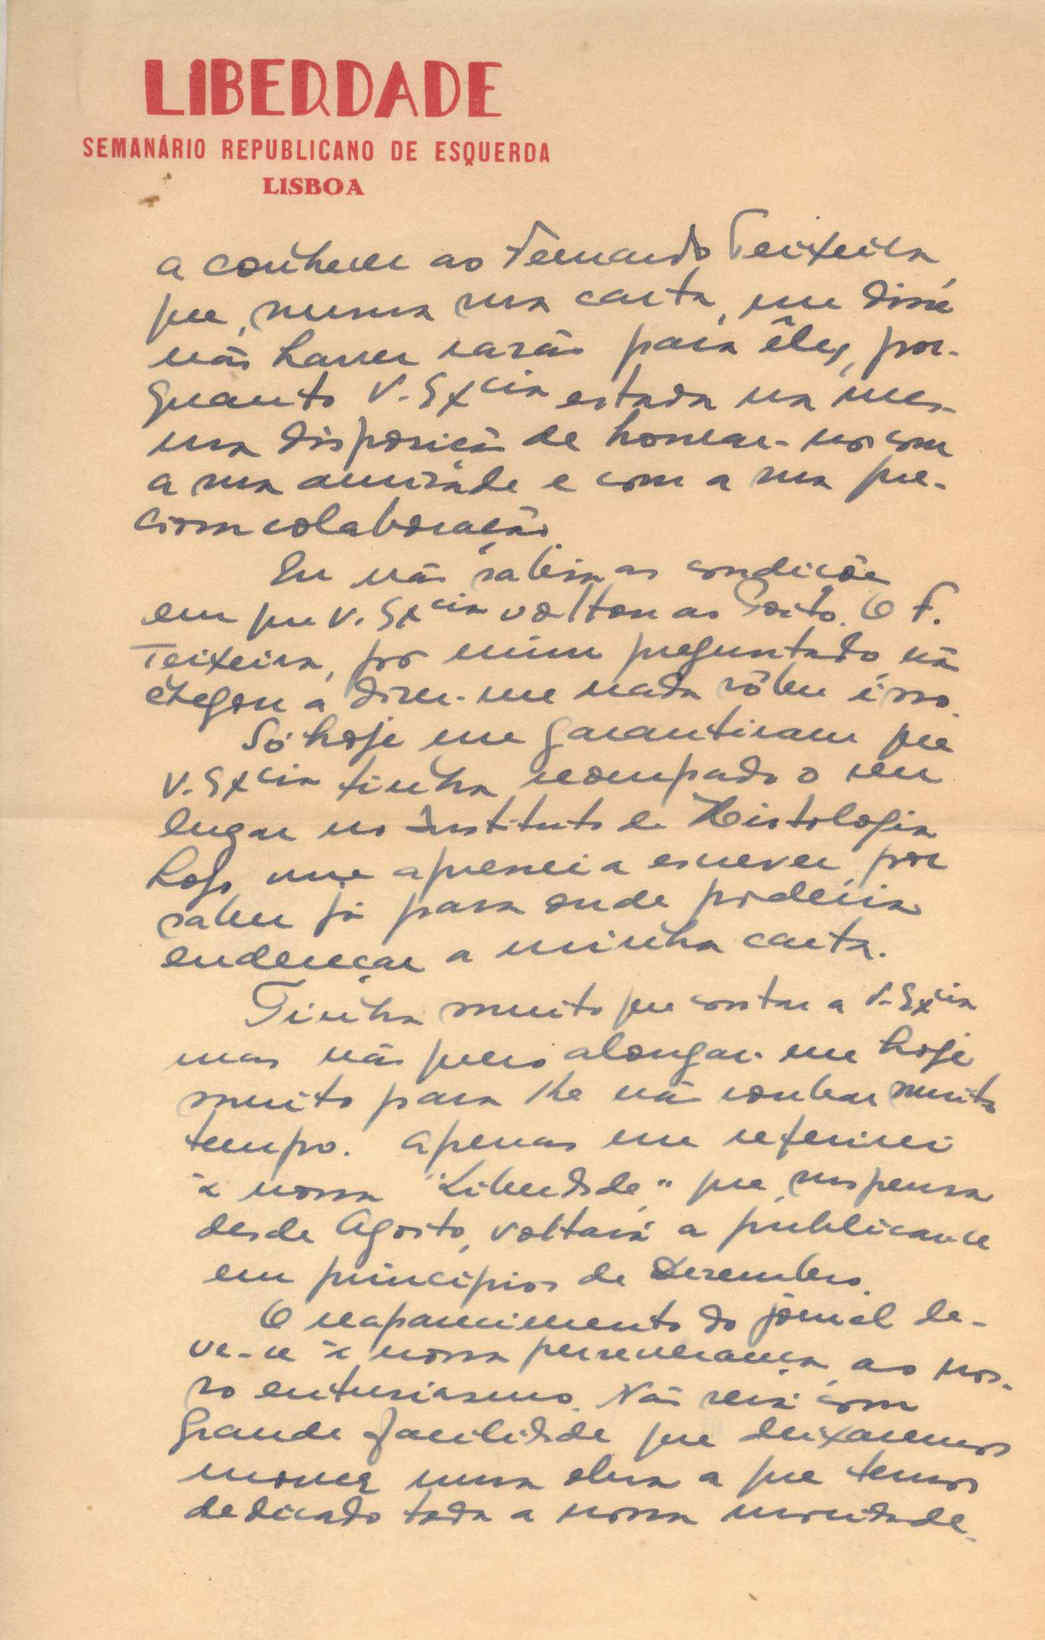 LIBERDADE
SEMANÁRIO REPUBLICANO DE ESQUERDA
LISBOA
a conhecer ao Fernando Teixeira,
que, numa sua carta, me disse
não haver razão para êles, por-
quanto V. Excia estava na mes-
ma disposição de honrar-nos com
a sua amizade e com a sua pre-
ciosa colaboração.
Eu não sabia as condições
em que V. Excia voltou ao Porto. O F.
Teixeira, por mim preguntado não
chegou a dizer-me nada sôbre isso.
Só hoje me garantiram que
V. Excia tinha reocupado o seu
lugar no Instituto de Histologia
Logo me apressei a escrever por
saber já para onde poderia
endereçar a minha carta.
Tinha muito que contar a V. Excia
mas não quero alongar-me hoje
muito para lhe não roubar muito
tempo. Apenas me referirei
à nossa "Liberdade" que, suspensa
desde Agosto, voltará a publicar-se
em princípios de Dezembro.
O reaparecimento do jornal de-
ve-se à nossa perseverança, ao nos-
so entusiasmo. Não será com
grande facilidade que deixaremos
morrer uma obra a que temos
dedicado toda a nossa mocidade.